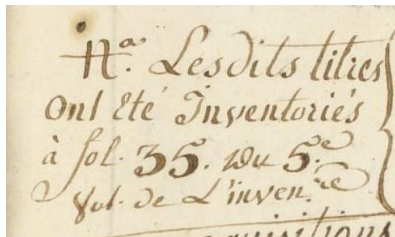 Nª. Les dits titres
ont Eté Inventoriés
à fol. 35. du 5.e
Vol. de L'inven.re